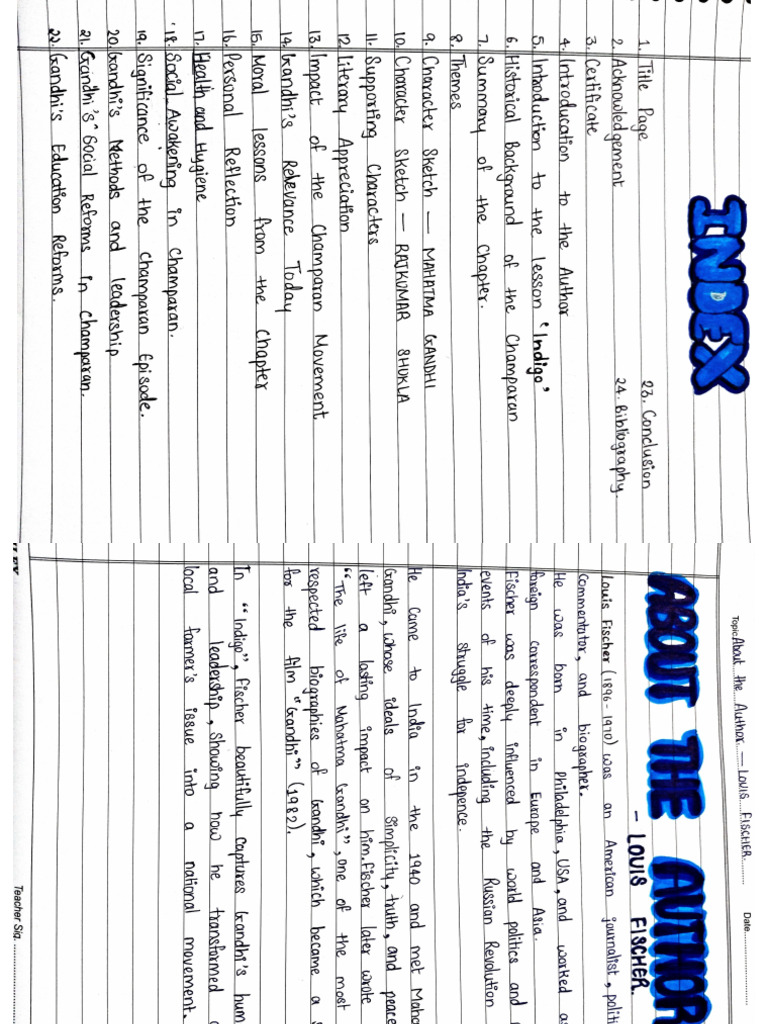 INDEX
1. Title Page
2. Acknowledgement
3. Certificate
4. Introducation to the Author
5. Introduction to the lesson 'Indigo'
6. Historical Background of the Champaran
7. Summary of the Chapter.
8. Themes
9. Character Sketch — MAHATMA GANDHI
10. Character Sketch — RAJKUMAR SHUKLA
11. Supporting Characters
12. Literary Appreciation
13. Impact of the Champaran Movement
14. Gandhi's Relevance Today
15. Moral lessons from the Chapter
16. Personal Reflection
17. Health and Hygiene
18. Social Awakening in Champaran.
19. Significance of the Champaran Episode.
20. Gandhi's Methods and leadership
21. Gandhi's Social Reforms in Champaran.
22. Gandhi's Education Reforms.
23. Conclusion
24. Bibliography.
Topic: About the Author. — LOUIS FISCHER. Date
ABOUT THE AUTHOR
- LOUIS FISCHER.
Louis Fischer (1896-1970) was an American journalist,
commentator, and biographer.
He was born in Philadelphia, USA, and worked
foreign correspondent in Europe and Asia.
Fischer was deeply influenced by world politics and
events of his time, including the Russian Revolution
India's struggle for indepence.
He came to India in the 1940 and met
Gandhi, whose ideals of simplicity, truth, and
left a lasting impact on him. Fischer later wrote
"The life of Mahatma Gandhi", one of the most
respected biographies of Gandhi, which became a
for the film "Gandhi" (1982).
In "Indigo", Fischer beautifully captures Gandhi's
and leadership, showing how he transformed
local farmer's issue into a national movement.
Teacher Sig.